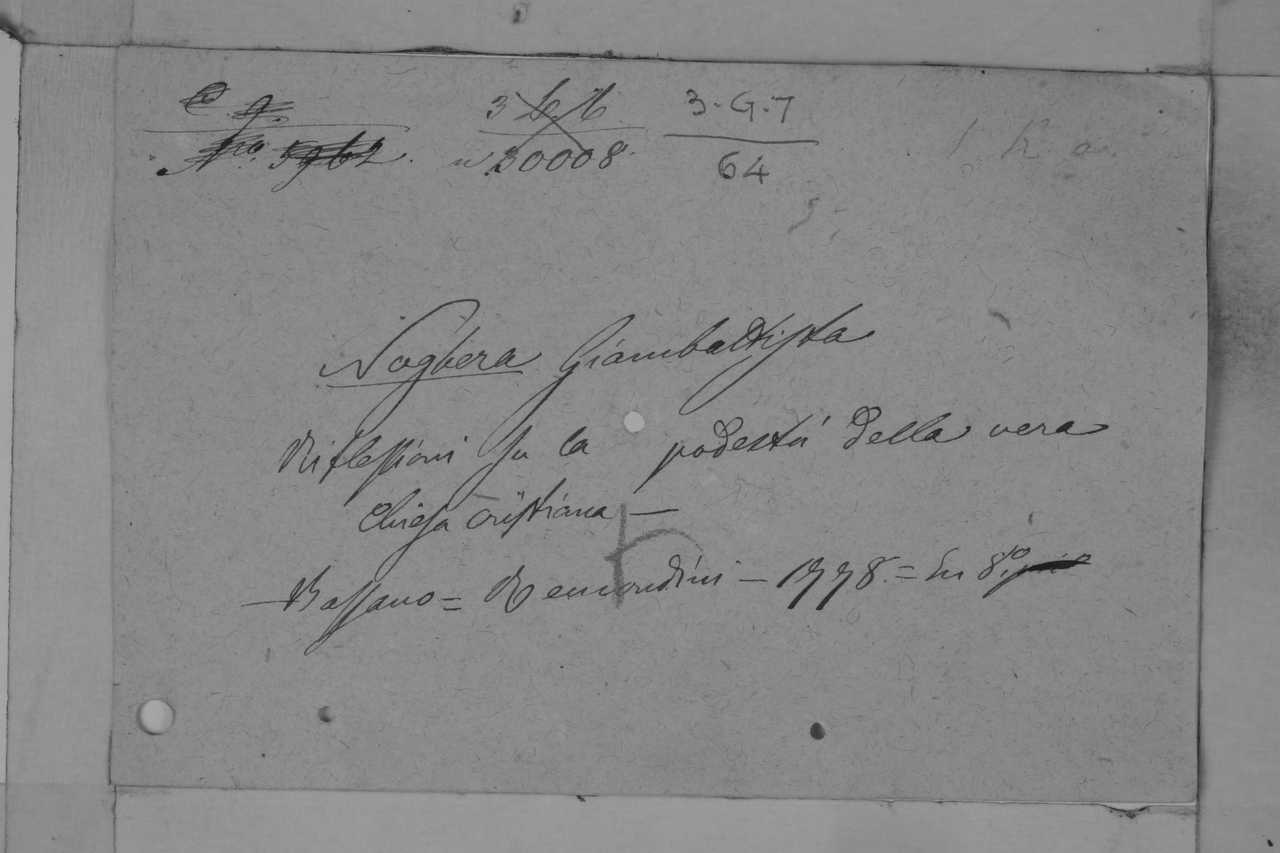 C. g.
Nro. 5962.
n 30008.
3-G-7
64
Noghera Giambattista
Riflessioni su la podestà della vera
Chiesa cristiana —
Bassano = Remondini — 1778. = In 8.º